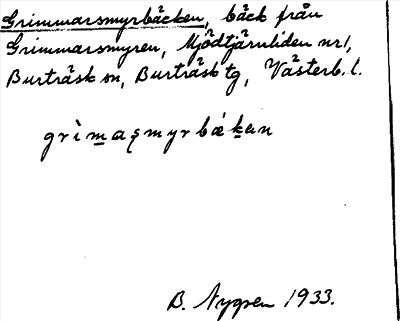 Grimmarsmyrbäcken, bäck från
Grimmarsmyren, Mjödtjärnliden nr 1,
Burträsk sn, Burträsk tg, Västerb. l.
grìmaşmyrbǽkən
B. Nygren 1933.